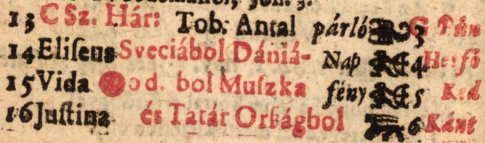 13 C Sz. Hár: Tob. Antal párló
14 Eliseus Sveciábol Dániá- Nap 4
15 Vida od. bol Muſzka fény 5
16 Juſtina és Tatár Orſzágbol 6